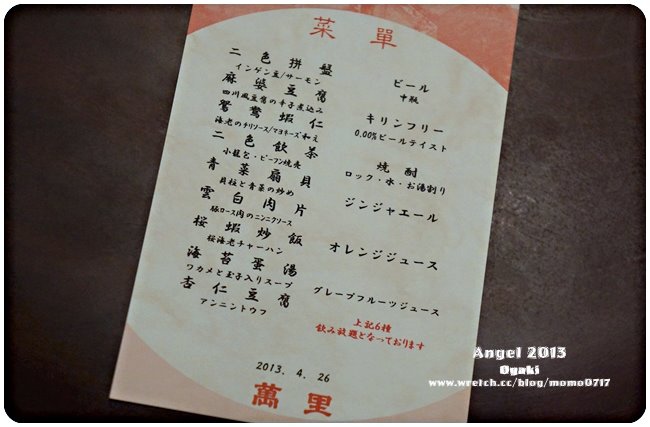 菜單
二色拼盤
インゲン豆/サーモン
麻婆豆腐
四川風豆腐の辛子煮込み
鴛鴦蝦仁
海老のチリソース/マヨネーズ和え
二色飲茶
小籠包・ビーフン焼売
青菜扇貝
貝柱と青菜の炒め
雲白肉片
豚ロース肉のニンニクソース
桜蝦炒飯
桜海老チャーハン
海苔蛋湯
ワカメと玉子入りスープ
杏仁豆腐
アンニントウフ
ビール
中瓶
キリンフリー
0.00%ビールテイスト
焼酎
ロック・水・お湯割り
ジンジャエール
オレンジジュース
グレープフルーツジュース
上記6種
飲み放題となっております
2013. 4. 26
萬里
Angel 2013
Oyaki
www.wretch.cc/blog/momo0717